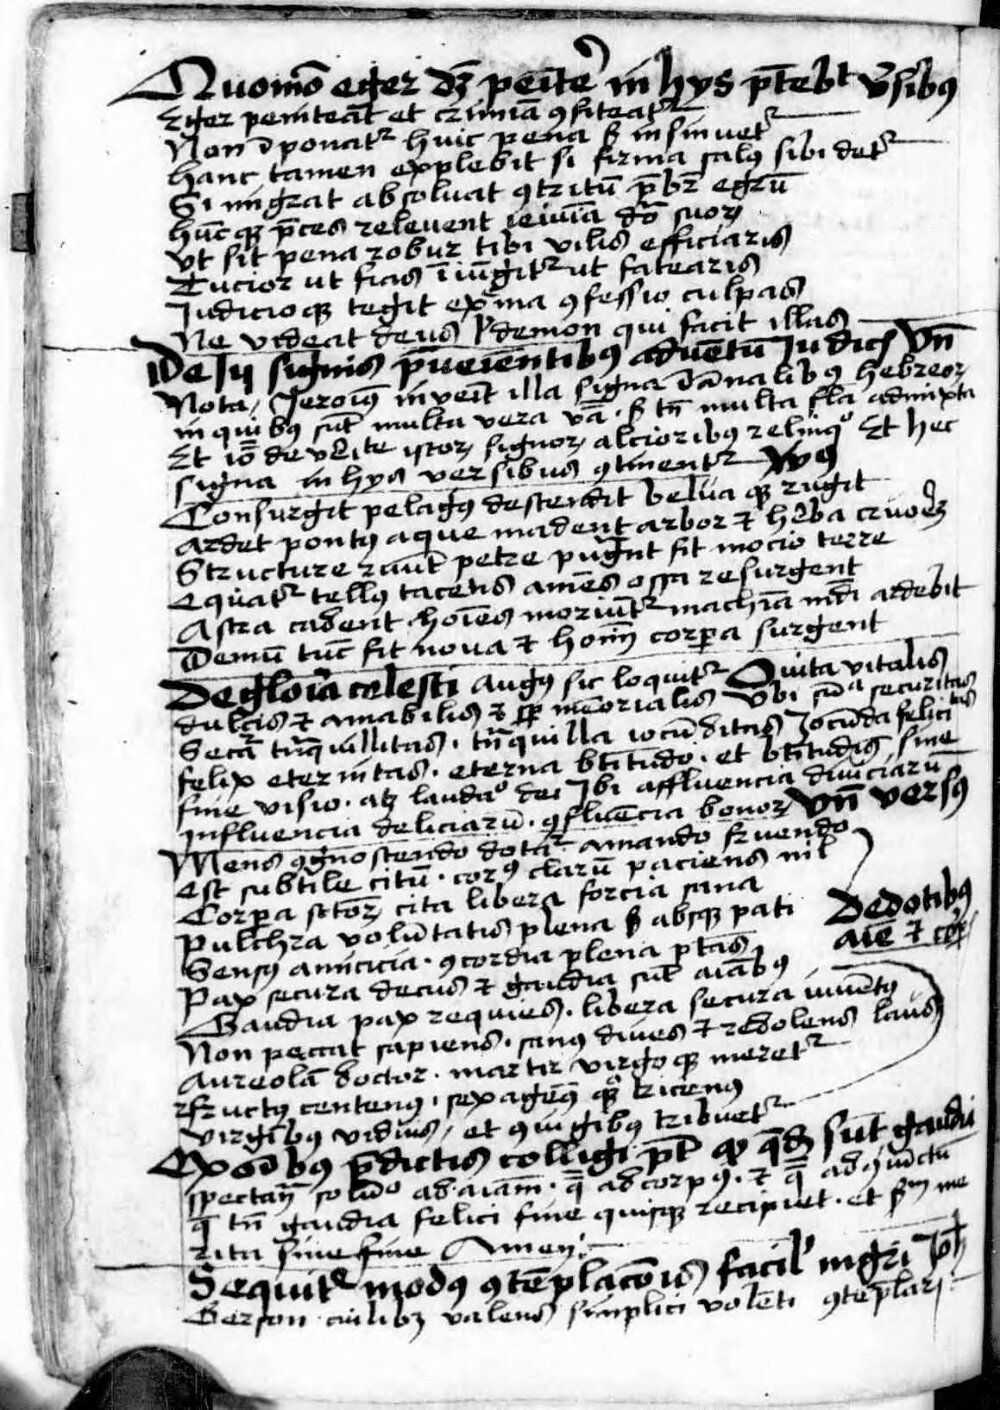 Quomo eger dz peite in hys ptebt vsibus
Eger peniteat et crimina 9fiteatr
Non iponatr huic pena sz insinuetr
hanc tamen explebit si firma salus sibi detr
Si migrat absoluat 9tritu pbr egru
hucqz pces releuent ieiunia do suor
Vt sit pena robur tibi vilis efficiaris
Tucior ut fias iiugitr ut fatearis
Judicioqz tegit exma 9fessio culpas
Ne videat deus demon qui facit illas
De signis pueientibus aduetu Judicis Vn
Nota Jeronius inueit illa signa i analibus hebreor
in quibus sut multa vera sz tn multa fla admixta
Et io de vlite istor signor alcioribus relinquo Et hec
signa in hys versibus 9tinentr
Consurgit pelagus descendit belua qz rugit
Ardet pontus aque madent arbor et herba cruore
Structure raut petre pugnt fit mocio terre
Equatr tellus tacens amens ossa resurgent
Astra cadent hoies moriutr machia mdi ardebit
Demu tuc fit noua et hom corpa surgent
De gloia celesti Augus sic loquitr O vita vitalis
dulcis et amabilis et sp memorialis Vbi suma securitas
Secura traquillitas . traquilla iocuditas Jocuda felicitas
felix eternitas . eterna btitudo . et btitudis sine
fine visio . atqz laudaco dei Ibi affluencia diuiciaru
influencia deliciaru . 9fluencia bonor Vn versus
Mens 9gnoscendo dotatr amando fruendo
Est subtile citu . corpus claru paciens nil
Corpa sctor cita libera forcia sana
Pulchra volutatis plena sz absqz pati
De dotibus
aie et corpis
Sensus amicicia . 9cordia plena ptas
Pax secura decus et gaudia sut aiabus
Gaudia pax requies . libera secura iuuetus
Non peccat sapiens . sanus diues et redolens laus
Aureola doctor . martir virgoqz meretr
Fructus centenus . sexagenus qz tricenus
Virgibus viduis, et 9iugibus tribuetr
Ex oibus pdictis colligi pt qd sut gaudia
spectan solumo ad aiam . ad corpus . et ad 9iuctu
q tn gaudia felici fine quisqz recipiet . et sm me
rita sine fine Amen
Sequitr modus 9teplacois facil mgri Joh
Gerson cuilibz valens simplici voleti 9teplari